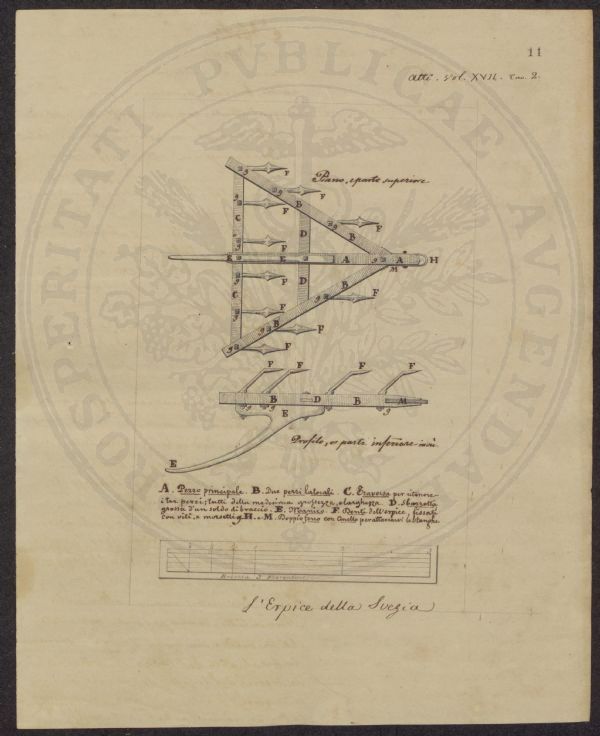 11
Atti. Vol. XVII. Cas. 2.
PROSPERITATI PVBLICAE AVGENDAE
Piano, e parte superiore
g F
g F
B
g F
C D
g F B
g F
E E A A H
M
g F B
C D
g F
g F
B
g F
g F
F F F F
g B g D g B g M
E
E
Profilo, e parte inferiore in sù
A. Pezzo principale. B. Due pezzi laterali. C. Traversa per ritenere
i tre pezzi; tutti della medesima grossezza, e larghezza. D. Sbarretta
grossa d'un soldo di braccio. E. Manico. F. Denti dell'erpice, fissati
con viti, e morsetti g. H. e M. Doppio ferro con Anello per attaccarvi le stanghe.
Braccia 3 Fiorentine
L'Erpice della Svezia